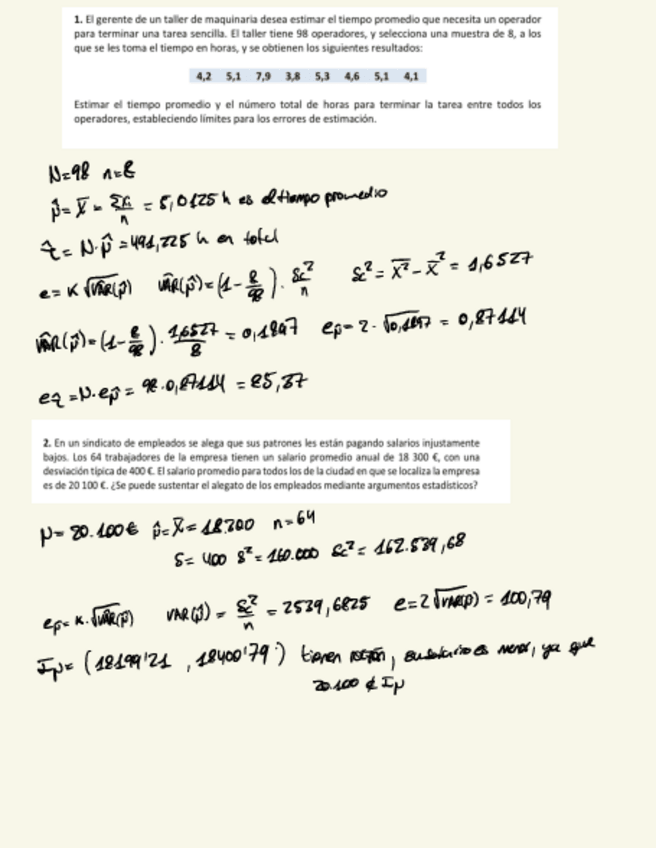 1. El gerente de un taller de maquinaria desea estimar el tiempo promedio que necesita un operador
para terminar una tarea sencilla. El taller tiene 98 operadores, y selecciona una muestra de 8, a los
que se les toma el tiempo en horas, y se obtienen los siguientes resultados:
4,2 5,1 7,9 3,8 5,3 4,6 5,1 4,1
Estimar el tiempo promedio y el número total de horas para terminar la tarea entre todos los
operadores, estableciendo límites para los errores de estimación.
N=98 n=8
μ̂ = x̄ = Σxi/n = 5,0125 h es el tiempo promedio
τ̂ = N·μ̂ = 491,225 h en total
e = K √VÂR(μ̂) VÂR(μ̂) = (1 - 8/98) · Sc²/n Sc² = x̄² - x̄² = 1,6527
VÂR(μ̂) = (1 - 8/98) · 1,6527/8 = 0,1897 eμ = 2 · √0,1897 = 0,87114
eτ̂ = N·eμ̂ = 98·0,87114 = 85,37
2. En un sindicato de empleados se alega que sus patrones les están pagando salarios injustamente
bajos. Los 64 trabajadores de la empresa tienen un salario promedio anual de 18 300 €, con una
desviación típica de 400 €. El salario promedio para todos los de la ciudad en que se localiza la empresa
es de 20 100 €. ¿Se puede sustentar el alegato de los empleados mediante argumentos estadísticos?
μ = 20.100€ μ̂ = x̄ = 18.300 n=64
S = 400 S² = 160.000 Sc² = 162.539,68
eμ = K·√VÂR(μ̂) VAR(μ̂) = Sc²/n = 2539,6825 e = 2√VAR(μ̂) = 100,79
Iμ = (18199'21 , 18400'79) tienen razón, su salario es menor, ya que
20.100 ∉ Iμ